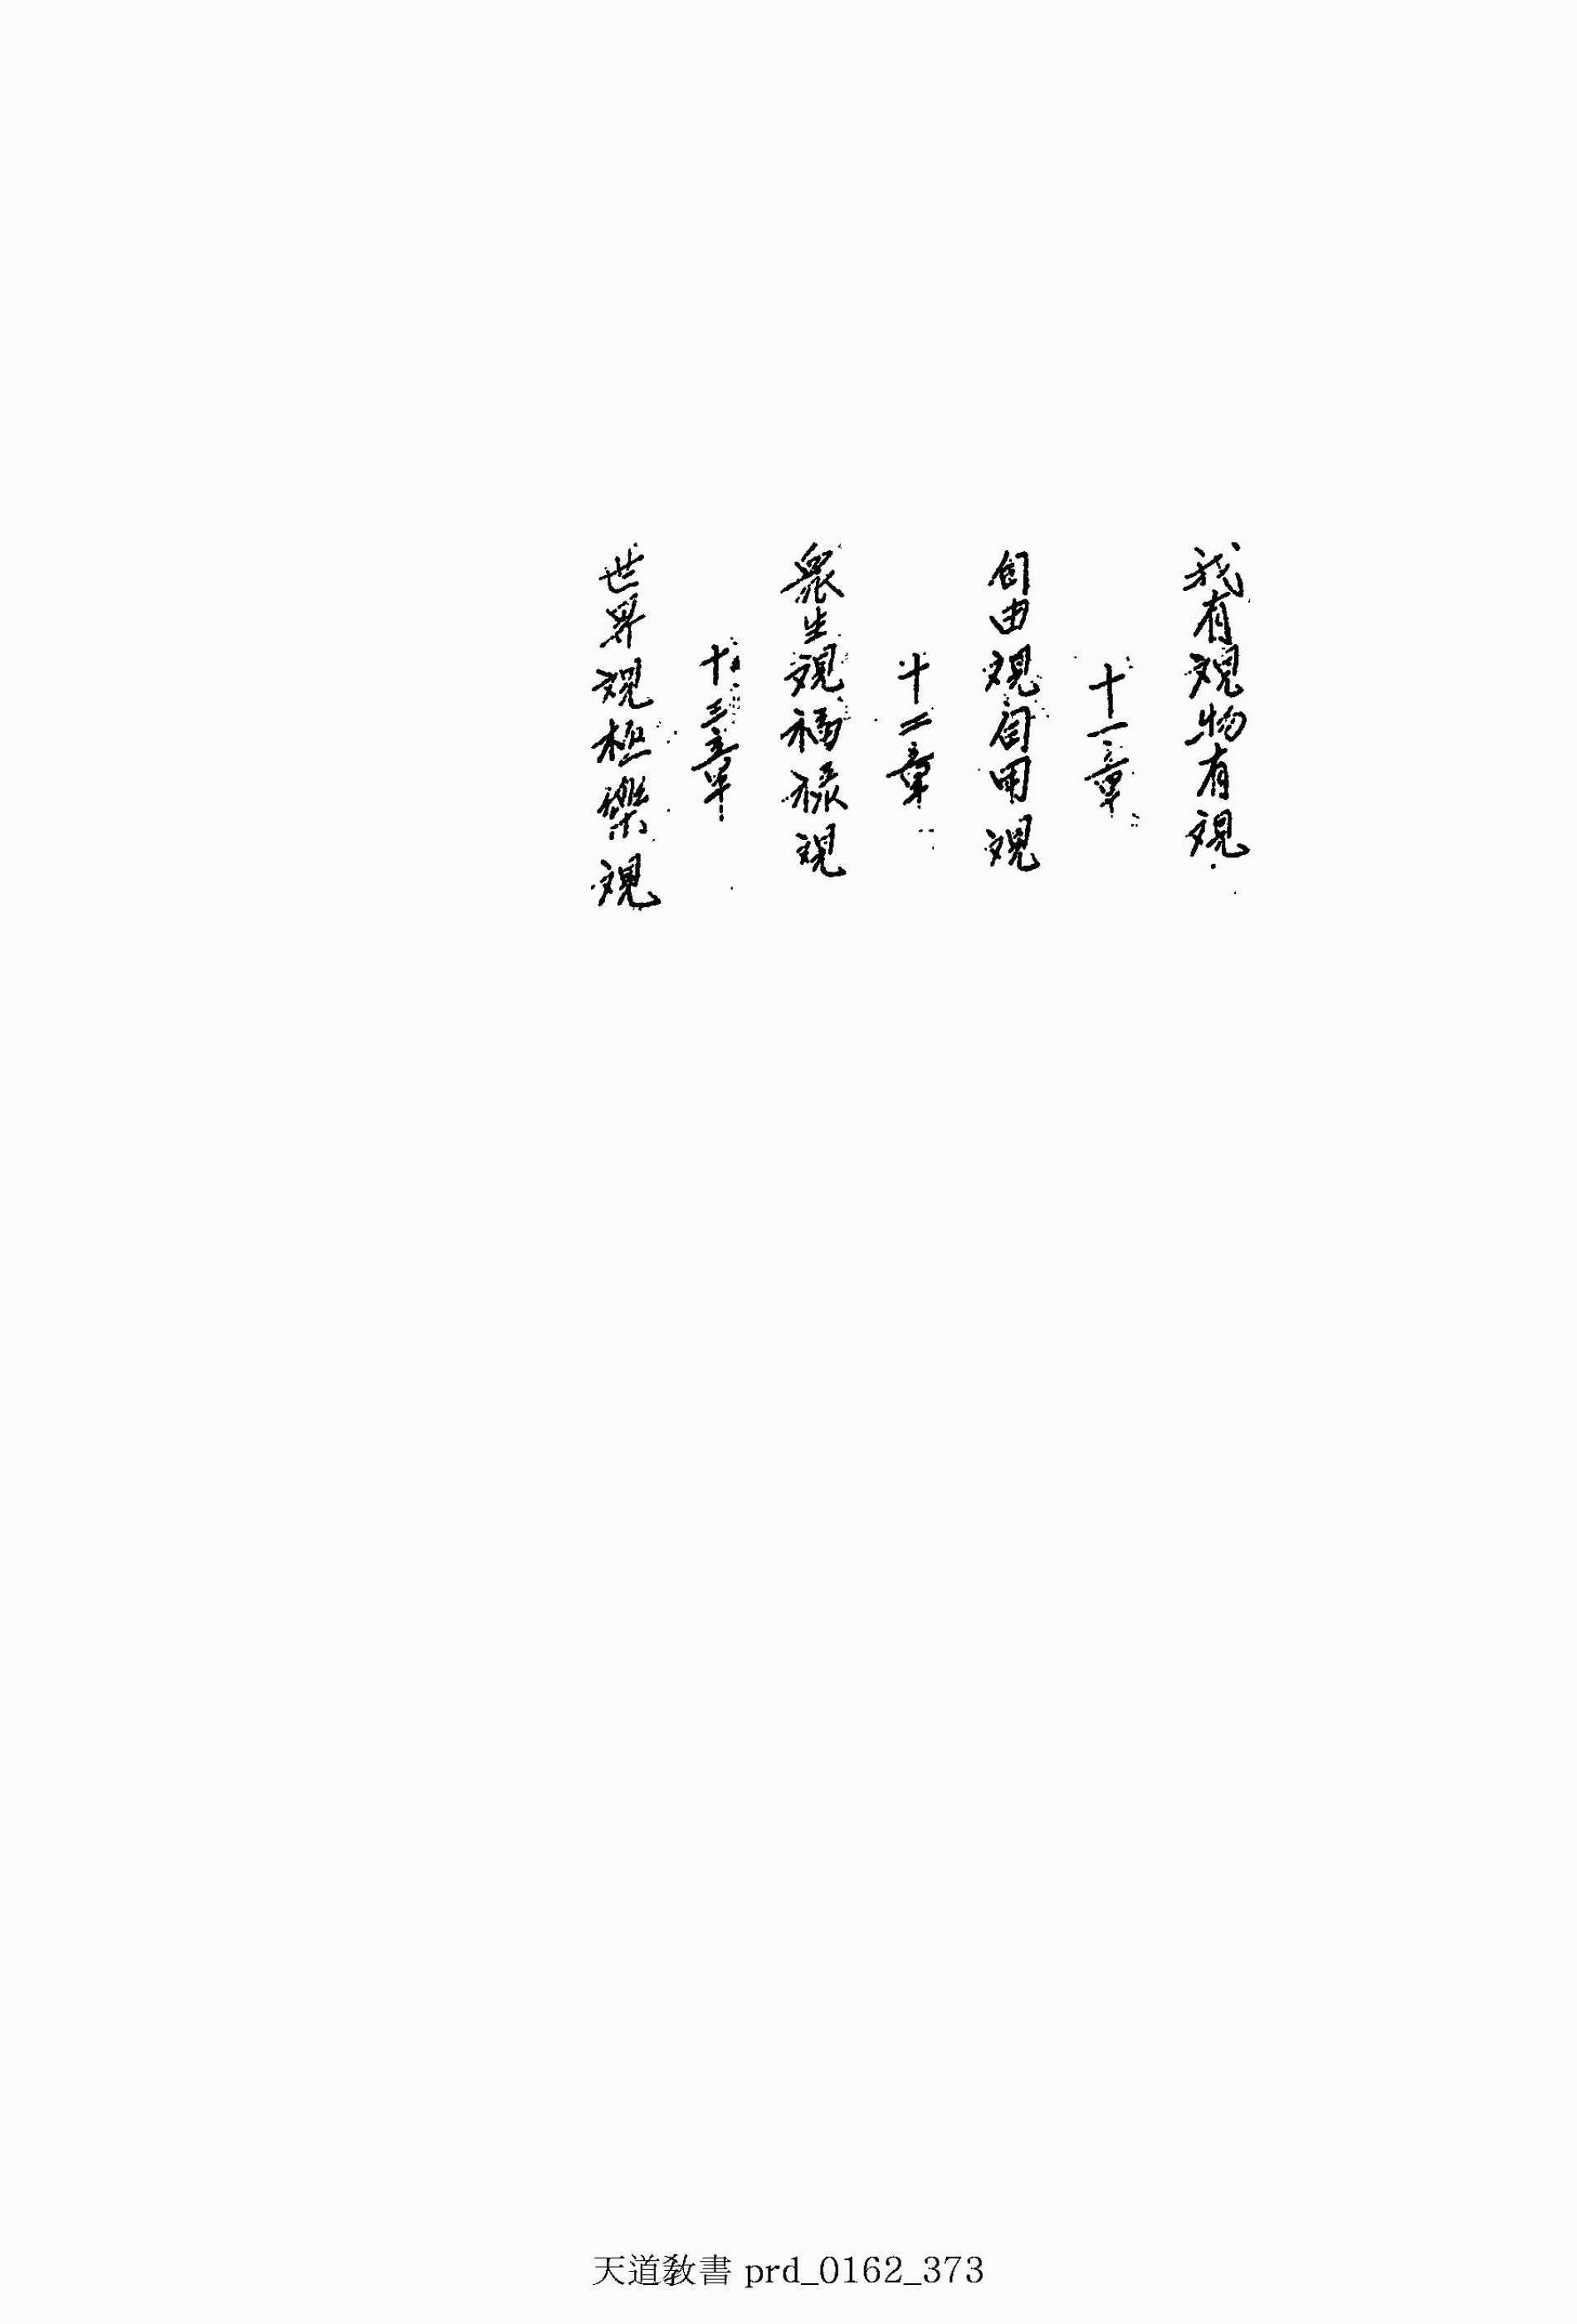 我有観物有観
十一章
自由観自用観
十二章
衆生観福祿観
十三章
世界観極樂観
天道敎書 prd_0162_373